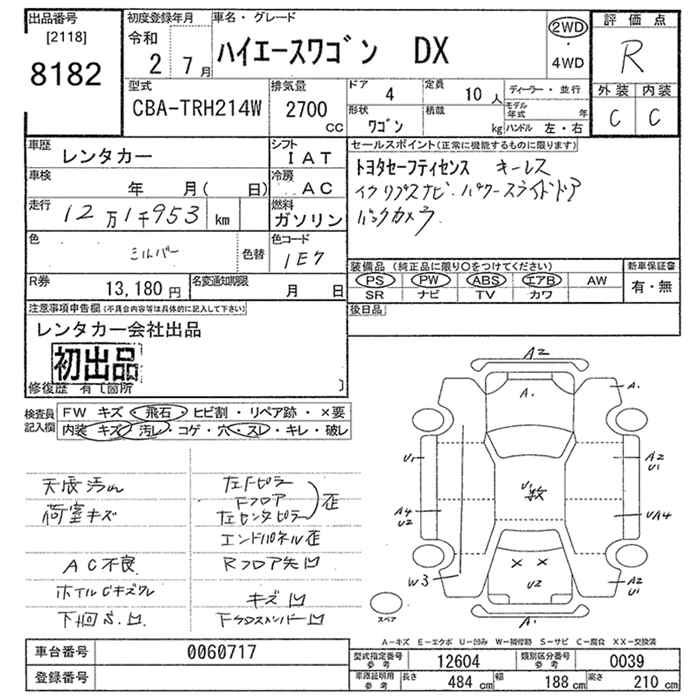 出品番号
[2118]
8182
初度登録年月
令和
2 7月
車名・グレード
ハイエースワゴン DX
2WD
・
4WD
評価点
R
外装 内装
C C
型式
CBA-TRH214W
排気量
2700
cc
ドア 4
定員 10人
形状 ワゴン
積載 kg
ディーラー・並行
モデル年式 年
ハンドル 左・右
車歴 レンタカー
シフト IAT
車検 年 月( 日)
冷房 AC
走行 12万1千953 km
燃料 ガソリン
色 シルバー 色替
色コード 1E7
R券 13,180円
名変通知期限 月 日
セールスポイント(正常に機能するものに限ります)
トヨタセーフティセンス キーレス
イクリプスナビ・パワースライドドア
バックカメラ
装備品(純正品に限り○をつけてください)
PS PW ABS エアB AW
SR ナビ TV カワ
新車保証書
有・無
後日品
注意事項申告欄(不具合内容等は具体的に記入して下さい)
レンタカー会社出品
初出品
修復歴 有〔箇所 〕
検査員記入欄
FW キズ・飛石・ヒビ割・リペア跡・×要
内装 キズ・汚レ・コゲ・穴・スレ・キレ・破レ
天張汚れ
荷室キズ
AC不良
ホイルCキズワレ
下回S.凹
左Fピラー
Fフロア
左センタピラー
歪
エンドパネル歪
Rフロア先凹
キズ凹
Fクロスメンバー凹
A2
A.
A.
U1
A2
U1
U1
数
A4
U2
UA4
W3
× ×
U2
A2
U1
A.
スペア
A-キズ E-エクボ U-凹み W-補修跡 S-サビ C-腐食 XX-交換済
車台番号 0060717
登録番号
型式指定番号 参考 12604
類別区分番号 参考 0039
車庫証明用 参考 長さ 484 cm 幅 188 cm 高さ 210 cm